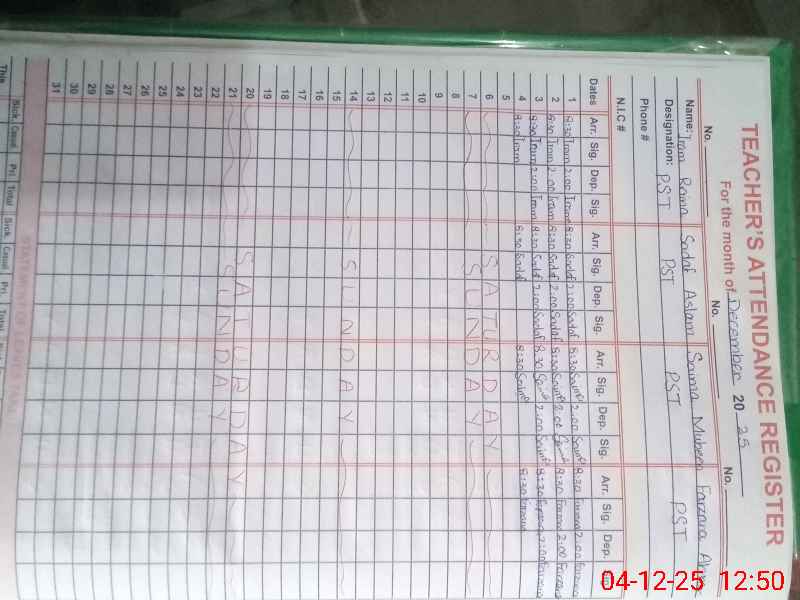 TEACHER'S ATTENDANCE REGISTER
For the month of December 20 25
No. No. No.
Name: Iram Raina Sadaf Aslam Saima Mubeen Farzana
Designation: PST PST PST PST
Phone #
N.I.C #
Dates Arr. Sig. Dep. Sig. Arr. Sig. Dep. Sig. Arr. Sig. Dep. Sig. Arr. Sig. Dep.
1 8:30 Iram 2:00 Iram 8:30 Sadaf 2:00 Sadaf 8:30 Saima 2:00 Saima 8:30 Farzana 2:00 Farzana
2 8:30 Iram 2:00 Iram 8:30 Sadaf 2:00 Sadaf 8:30 Saima 2:00 Saima 8:30 Farzana 2:00 Farzana
3 8:30 Iram 2:00 Iram 8:30 Sadaf 2:00 Sadaf 8:30 Saima 2:00 Saima 8:30 Farzana 2:00 Farzana
4 8:30 Iram 8:30 Sadaf 8:30 Saima 8:30 Farzana
5
6 SATURDAY
7 SUNDAY
8
9
10
11
12
13
14 SUNDAY
15
16
17
18
19
20 SATURDAY
21 SUNDAY
22
23
24
25
26
27
28
29
30
31
STATEMENT OF LEAVES TAKEN
Sick Casual Pri. Total Sick Casual Pri. Total
This
04-12-25 12:50